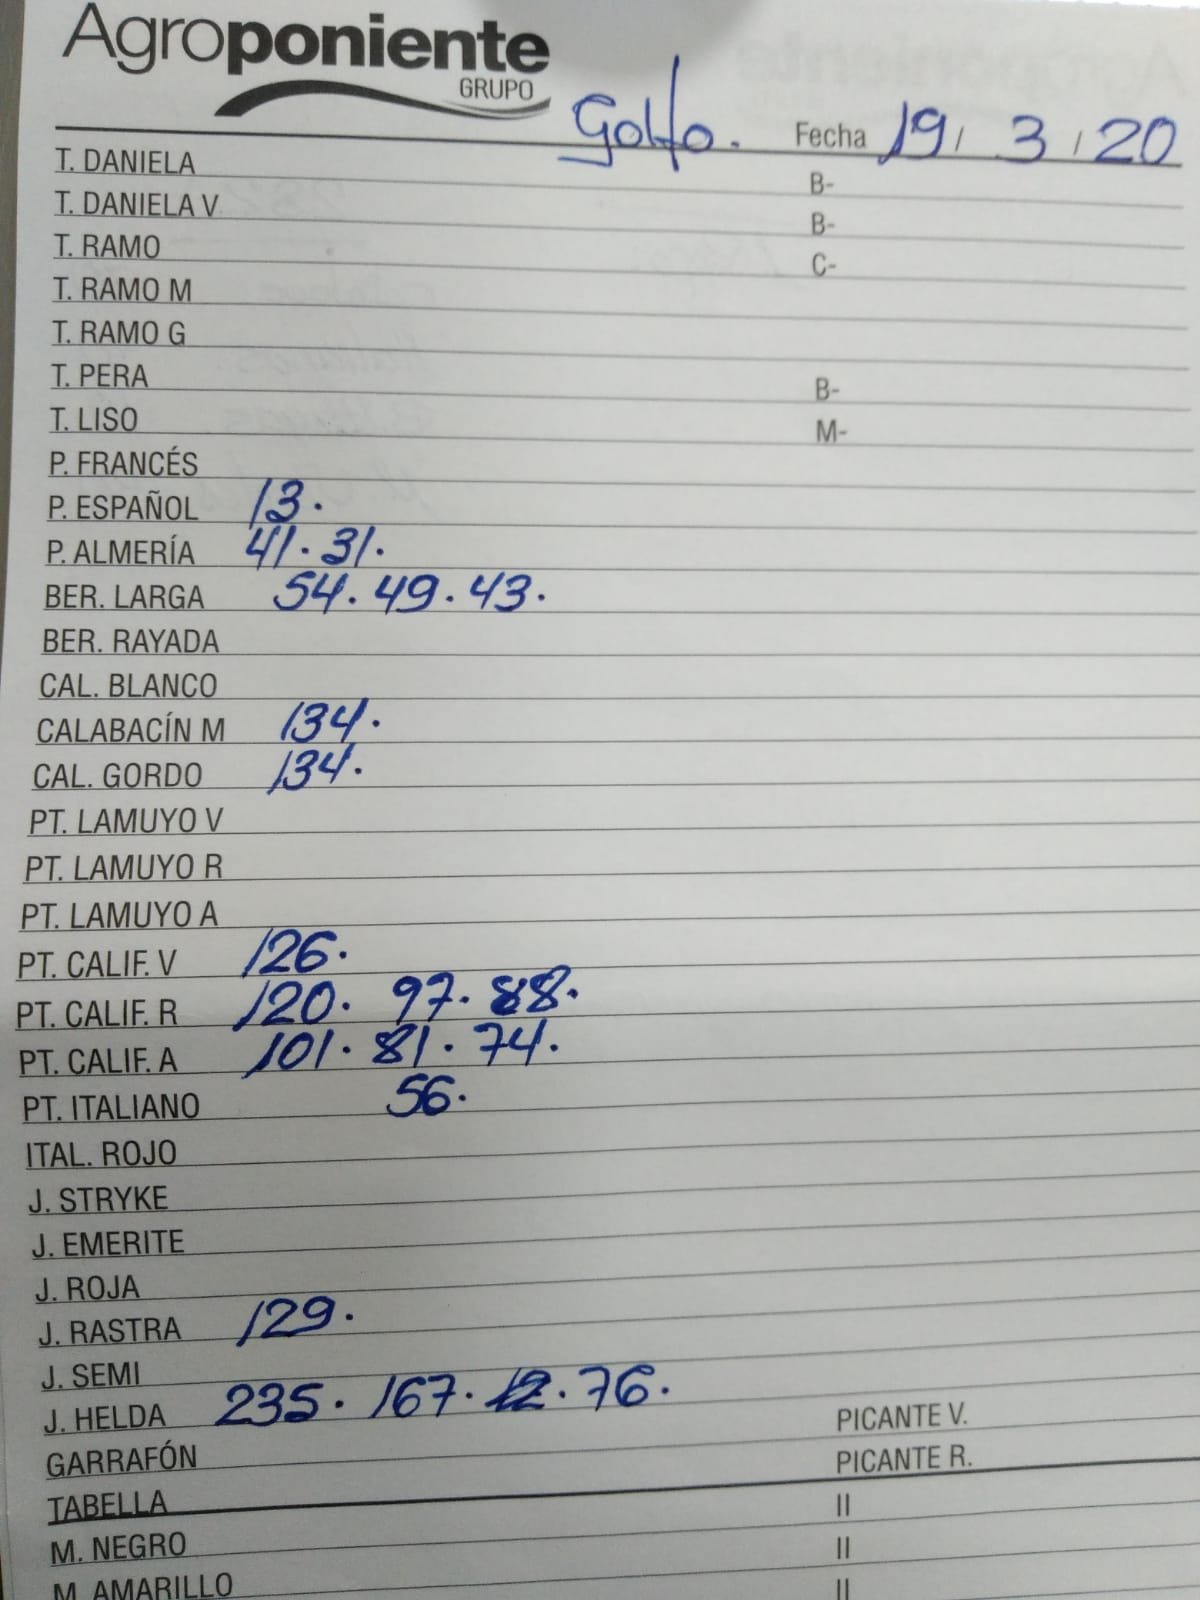 Agroponiente
GRUPO
Golfo. Fecha 19/ 3 / 20
T. DANIELA B-
T. DANIELA V B-
T. RAMO C-
T. RAMO M
T. RAMO G
T. PERA B-
T. LISO M-
P. FRANCÉS
P. ESPAÑOL 13.
P. ALMERÍA 41. 31.
BER. LARGA 54. 49. 43.
BER. RAYADA
CAL. BLANCO
CALABACÍN M 134.
CAL. GORDO 134.
PT. LAMUYO V
PT. LAMUYO R
PT. LAMUYO A
PT. CALIF. V 126.
PT. CALIF. R 120. 97. 88.
PT. CALIF. A 101. 81. 74.
PT. ITALIANO 56.
ITAL. ROJO
J. STRYKE
J. EMERITE
J. ROJA
J. RASTRA 129.
J. SEMI
J. HELDA 235. 167. 76.
PICANTE V.
GARRAFÓN PICANTE R.
TABELLA II
M. NEGRO II
M. AMARILLO II